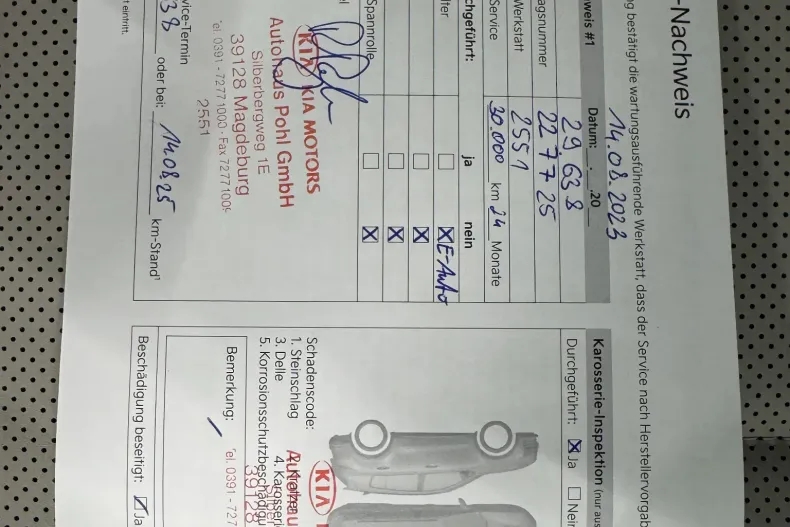 -Nachweis
ng bestätigt die wartungsausführende Werkstatt, dass der Service nach Herstellervorgab
14.08.2023
weis #1 Datum: . .20
29.638
agsnummer 22 77 25
Werkstatt 2551
Service 30.000 km 24 Monate
chgeführt: ja nein
lter ☐ ☒ E-Auto
☐ ☒
☐ ☒
Spannrolle ☐ ☒
el
KIA KIA MOTORS
Autohaus Pohl GmbH
Silberbergweg 1E
39128 Magdeburg
Tel. 0391 - 7277 1000 · Fax 7277 1009
2551
vice-Termin
38 oder bei: 14.08.25 km-Stand¹
t eintritt.
Karosserie-Inspektion (nur aus
Durchgeführt: ☒ Ja ☐ Nein
Schadenscode:
1. Steinschlag
3. Delle 4. Karosseri
5. Korrosionsschutzbeschädigu
KIA
Autohau
39128
Tel. 0391 - 727
Bemerkung: /
Beschädigung beseitigt: ☑ Ja